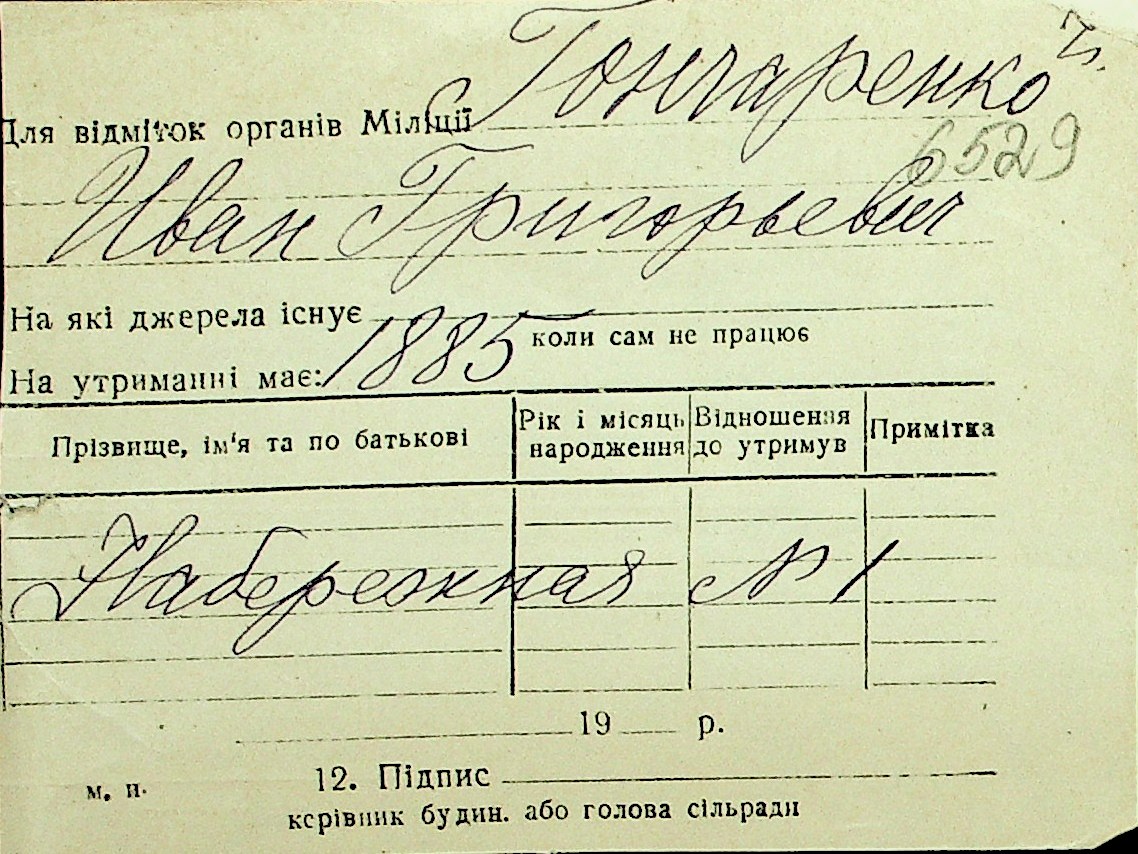 Для відміток органів Міліції Гончаренко
6529
Иван Григорьевич
На які джерела існує
коли сам не працює
На утриманні має: 1885
Прізвище, ім'я та по батькові Рік і місяць народження Відношення до утримув Примітка
Набережная № 1
19 р.
м. п. 12. Підпис
керівник будин. або голова сільради